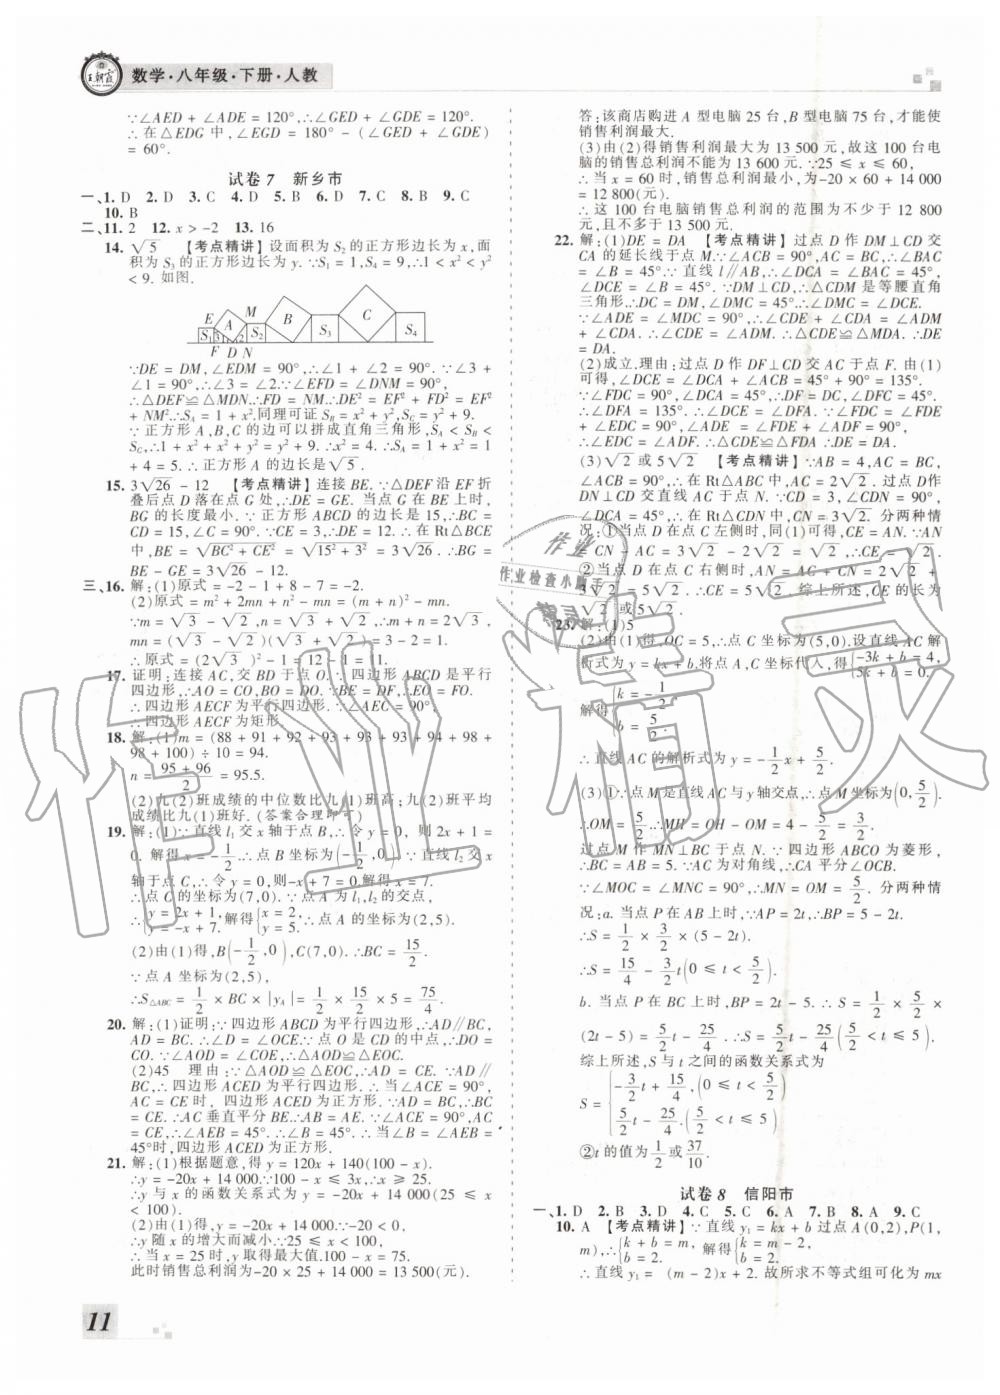 王朝霞
数学·八年级·下册·人教
∵∠AED + ∠ADE = 120°,∴∠GED + ∠GDE = 120°.
∴在△EDG 中,∠EGD = 180° - (∠GED + ∠GDE)
= 60°.
试卷 7 新乡市
一、1. D 2. D 3. C 4. D 5. B 6. D 7. C 8. B 9. C
10. B
二、11. 2 12. x > -2 13. 16
14. √5 【考点精讲】设面积为 S₂ 的正方形边长为 x,面
积为 S₃ 的正方形边长为 y. ∵S₁ = 1,S₄ = 9,∴1 < x² < y²
< 9. 如图.
E A M B C
S₁ 3 1 2 S₂ S₃ S₄
F D N
∵DE = DM,∠EDM = 90°,∴∠1 + ∠2 = 90°. ∵∠3 +
∠1 = 90°,∴∠3 = ∠2. ∵∠EFD = ∠DNM = 90°,
∴△DEF≌△MDN. ∴FD = NM. ∴DE² = EF² + FD² = EF²
+ NM². ∴S_A = 1 + x². 同理可证 S_B = x² + y²,S_C = y² + 9.
∵正方形 A,B,C 的边可以拼成直角三角形,S_A < S_B <
S_C,∴1 + x² + x² + y² = y² + 9. ∴x² = 4. ∴S_A = 1 + x² = 1
+ 4 = 5. ∴正方形 A 的边长是√5.
15. 3√26 - 12 【考点精讲】连接 BE. ∵△DEF 沿 EF 折
叠后点 D 落在点 G 处,∴DE = GE. 当点 G 在 BE 上时,
BG 的长度最小. ∵正方形 ABCD 的边长是 15,∴BC =
CD = 15,∠C = 90°. ∵CE = 3,∴DE = 12. ∴在 Rt△BCE
中,BE = √(BC² + CE²) = √(15² + 3²) = 3√26. ∴BG =
BE - GE = 3√26 - 12.
三、16. 解:(1)原式 = -2 - 1 + 8 - 7 = -2.
(2)原式 = m² + 2mn + n² - mn = m² + mn + n².
∵m = √3 - √2,n = √3 + √2,∴m + n = 2√3,
mn = (√3 - √2)(√3 + √2) = 1.
∴原式 = (2√3)² - 1 = 12 - 1 = 11.
17. 证明:连接 AC,交 BD 于点 O. ∵四边形 ABCD 是平行
四边形,∴AO = CO,BO = DO. ∵BE = DF,∴EO = FO.
∴四边形 AECF 为平行四边形. ∵∠AEC = 90°,
∴四边形 AECF 为矩形.
18. 解:(1)m = (88 + 91 + 92 + 93 + 93 + 93 + 94 + 98 +
98 + 100) ÷ 10 = 94.
n = (95 + 96)/2 = 95.5.
(2)九(2)班成绩的中位数比九(1)班高;九(2)班平均
成绩比九(1)班好.(答案合理即可)
19. 解:(1)∵直线 l₁ 交 x 轴于点 B,∴令 y = 0, 则 2x + 1 =
0. 解得 x = -1/2. ∴点 B 的坐标为(-1/2,0). ∵直线 l₂ 交 x
轴于点 C,∴令 y = 0,则 -x + 7 = 0. 解得 x = 7.
∴点 C 的坐标为(7,0). ∵点 A 为 l₁,l₂ 的交点,
∴{y = 2x + 1, y = -x + 7. 解得{x = 2, y = 5. ∴点 A 的坐标为(2,5).
(2)由(1)得,B(-1/2,0),C(7,0). ∴BC = 15/2.
∵点 A 坐标为(2,5),
∴S△ABC = 1/2 × BC × |y_A| = 1/2 × 15/2 × 5 = 75/4.
20. 解:(1)证明:∵四边形 ABCD 为平行四边形,∴AD∥BC,
AD = BC. ∴∠D = ∠OCE. ∵点 O 是 CD 的中点,∴DO =
CO. ∵∠AOD = ∠COE,∴△AOD≌△EOC.
(2)45 理由:∵△AOD≌△EOC,∴AD = CE. ∵AD∥
BC,∴四边形 ACED 为平行四边形. 当∠ACE = 90°,
AC = CE 时,四边形 ACED 为正方形. ∵AD = BC,∴BC =
CE. ∴AC 垂直平分 BE. ∴AB = AE. ∵∠ACE = 90°,AC =
CE,∴∠AEB = 45°. ∴∠B = 45°. ∴当∠B = ∠AEB =
45°时,四边形 ACED 为正方形.
21. 解:(1)根据题意,得 y = 120x + 140(100 - x).
∴y = -20x + 14 000. ∵100 - x ≤ 3x,∴x ≥ 25.
∴y 与 x 的函数关系式为 y = -20x + 14 000(25 ≤ x
< 100).
(2)由(1)得,y = -20x + 14 000.
∴y 随 x 的增大而减小. ∵25 ≤ x < 100,
∴当 x = 25 时,y 取得最大值.
此时销售总利润为 -20 × 25 + 14 000 = 13 500(元).
答:该商店购进 A 型电脑 25 台,B 型电脑 75 台,才能使
销售利润最大.
(3)由(2)得销售利润最大为 13 500 元,故这 100 台电
脑的销售总利润不能为 13 600 元. ∵25 ≤ x ≤ 60,
∴当 x = 60 时,销售总利润最小,为 -20 × 60 + 14 000
= 12 800(元).
∴这 100 台电脑销售总利润的范围为不少于 12 800
元,且不多于 13 500 元.
22. 解:(1)DE = DA 【考点精讲】过点 D 作 DM⊥CD 交
CA 的延长线于点 M. ∵∠ACB = 90°,AC = BC,∴∠BAC
= ∠B = 45°. ∵直线 l∥AB,∴∠DCA = ∠BAC = 45°,
∠DCE = ∠B = 45°. ∵DM⊥CD,∴△CDM 是等腰直角
三角形. ∴DC = DM,∠DMC = 45°. ∴∠DMC = ∠DCE.
∵∠ADE = ∠MDC = 90°,∴∠CDE + ∠CDA = ∠ADM
+ ∠CDA. ∴∠CDE = ∠ADM. ∴△CDE≌△MDA. ∴DE
= DA.
(2)成立. 理由:过点 D 作 DF⊥CD 交 AC 于点 F. 由(1)
可得,∠DCE = ∠DCA + ∠ACB = 45° + 90° = 135°.
∵∠FDC = 90°,∠DCA = 45°,∴DF = DC,∠DFC = 45°.
∴∠DFA = 135°. ∴∠DCE = ∠DFA. ∵∠FDC = ∠FDE
+ ∠EDC = 90°,∠ADE = ∠ADF + ∠FDE = 90°,
∴∠EDC = ∠ADF. ∴△CDE≌△FDA. ∴DE = DA.
(3)√2 或 5√2 【考点精讲】∵AB = 4,AC = BC,
∠ACB = 90°,∴在 Rt△ABC 中,AC = 2√2. 过点 D 作
DN⊥CD 交直线 AC 于点 N. ∵CD = 3,∠CDN = 90°,
∠DCN = 45°,∴在 Rt△CDN 中,CN = 3√2. 分两种情
况:①当点 D 在点 C 左侧时,同(1)可得,CE = AN. ∵AN
= CN - AC = 3√2 - 2√2 = √2,∴CE = √2.
②当点 D 在点 C 右侧时,AN = AC + CN = 2√2 +
3√2 = 5√2. ∴CE = 5√2. 综上所述,CE 的长为
√2 或 5√2.
23. 解:(1)5
(2)由(1)得,OC = 5,∴点 C 坐标为(5,0). 设直线 AC 解
析式为 y = kx + b. 将点 A,C 坐标代入,得{-3k + b = 4, 5k + b = 0.
解得{k = -1/2, b = 5/2.
∴直线 AC 的解析式为 y = -1/2x + 5/2.
(3)①∵点 M 是直线 AC 与 y 轴交点,∴点 M 坐标为(0,5/2).
∴OM = 5/2. ∴MH = OH - OM = 4 - 5/2 = 3/2.
过点 M 作 MN⊥BC 于点 N. ∵四边形 ABCO 为菱形,
∴BC = AB = 5. ∵AC 为对角线,∴CA 平分∠OCB.
∵∠MOC = ∠MNC = 90°,∴MN = OM = 5/2. 分两种情
况:a. 当点 P 在 AB 上时,∵AP = 2t,∴BP = 5 - 2t.
∴S = 1/2 × 3/2 × (5 - 2t).
∴S = 15/4 - 3/2t(0 ≤ t < 5/2).
b. 当点 P 在 BC 上时,BP = 2t - 5. ∴S = 1/2 × 5/2 ×
(2t - 5) = 5/2t - 25/4. ∴S = 5/2t - 25/4(5/2 < t ≤ 5).
综上所述,S 与 t 之间的函数关系式为
S = {-3/2t + 15/4,(0 ≤ t < 5/2) 5/2t - 25/4.(5/2 < t ≤ 5)
②t 的值为 1/2 或 37/10.
试卷 8 信阳市
一、1. D 2. D 3. D 4. C 5. C 6. A 7. B 8. A 9. C
10. A 【考点精讲】∵直线 y₁ = kx + b 过点 A(0,2),P(1,
m),∴{k + b = m, b = 2. 解得{k = m - 2, b = 2.
∴直线 y₁ = (m - 2)x + 2. 故所求不等式组可化为 mx
11
作业
作业检查小助手
精灵
作业精灵